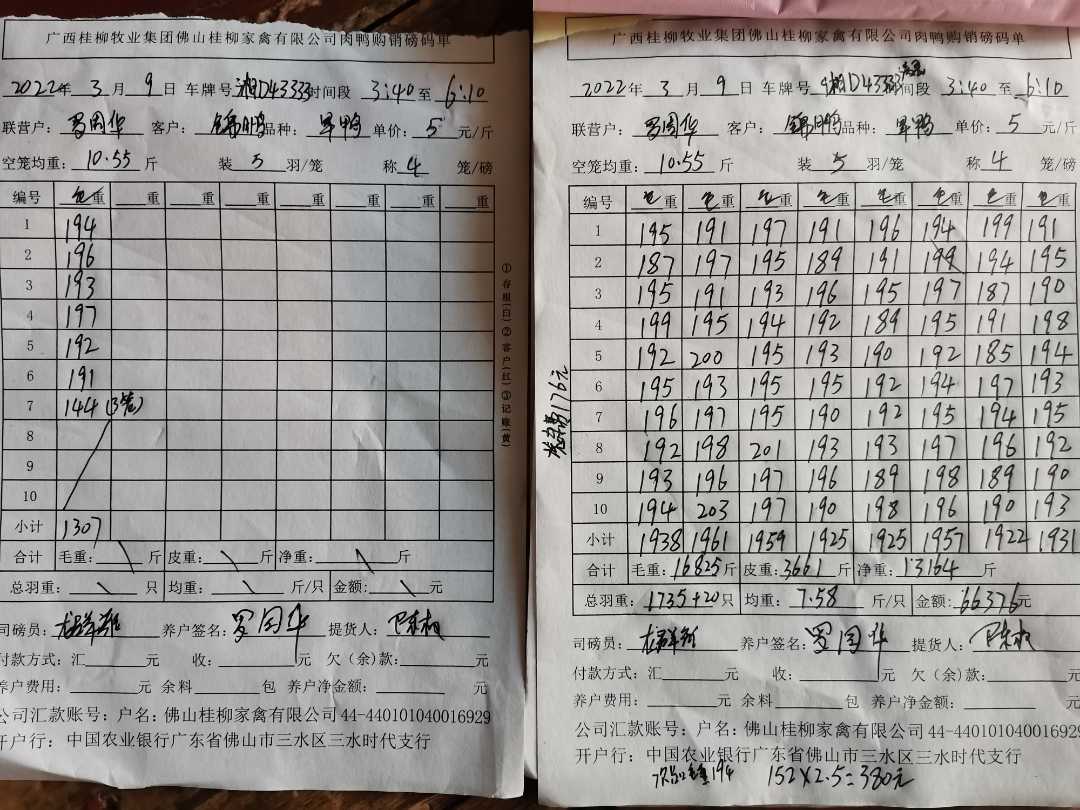 广西桂柳牧业集团佛山桂柳家禽有限公司肉鸭购销磅码单
2022年 3 月 9 日 车牌号 湘D43333 时间段 3:40 至 6:10
联营户: 罗国华 客户: 锦鹏鸭 品种: 旱鸭 单价: 5 元/斤
空笼均重: 10.55 斤 装 5 羽/笼 称 4 笼/磅
编号 毛重 重 重 重 重 重 重 重
1 194
2 196
3 193
4 197
5 192
6 191
7 144 (3笼)
8
9
10
小计 1307
合计 毛重: 斤 皮重: 斤 净重: 斤
总羽重: 只 均重: 斤/只 金额: 元
司磅员: 养户签名: 罗国华 提货人:
付款方式: 汇 元 收: 元 欠(余)款: 元
养户费用: 元 余料 包 养户净金额: 元
公司汇款账号: 户名: 佛山桂柳家禽有限公司 44-440101040016929
开户行: 中国农业银行广东省佛山市三水区三水时代支行
①存根(白)②客户(红)③记账(黄)
广西桂柳牧业集团佛山桂柳家禽有限公司肉鸭购销磅码单
2022年 3 月 9 日 车牌号 湘D43333 时间段 3:40 至 6:10
联营户: 罗国华 客户: 锦鹏鸭 品种: 旱鸭 单价: 5 元/斤
空笼均重: 10.55 斤 装 5 羽/笼 称 4 笼/磅
编号 毛重 毛重 毛重 毛重 毛重 毛重 毛重 毛重
1 195 191 197 191 196 194 199 191
2 187 197 195 189 191 199 194 195
3 195 191 193 196 195 197 187 190
4 199 195 194 192 189 195 191 198
5 192 200 195 193 190 192 185 194
6 195 193 195 195 192 194 197 193
7 196 197 195 190 192 195 194 195
8 192 198 201 193 193 197 196 192
9 193 196 197 196 189 198 189 190
10 194 203 197 190 198 196 190 193
小计 1938 1961 1959 1925 1925 1957 1922 1931
合计 毛重: 16825 斤 皮重: 3661 斤 净重: 13164 斤
总羽重: 1735+20 只 均重: 7.58 斤/只 金额: 66376 元
司磅员: 养户签名: 罗国华 提货人:
付款方式: 汇 元 收: 元 欠(余)款:
养户费用: 元 余料 包 养户净金额:
公司汇款账号: 户名: 佛山桂柳家禽有限公司 44-440101040016929
开户行: 中国农业银行广东省佛山市三水区三水时代支行
毛重194 152×2.5=380元
176元